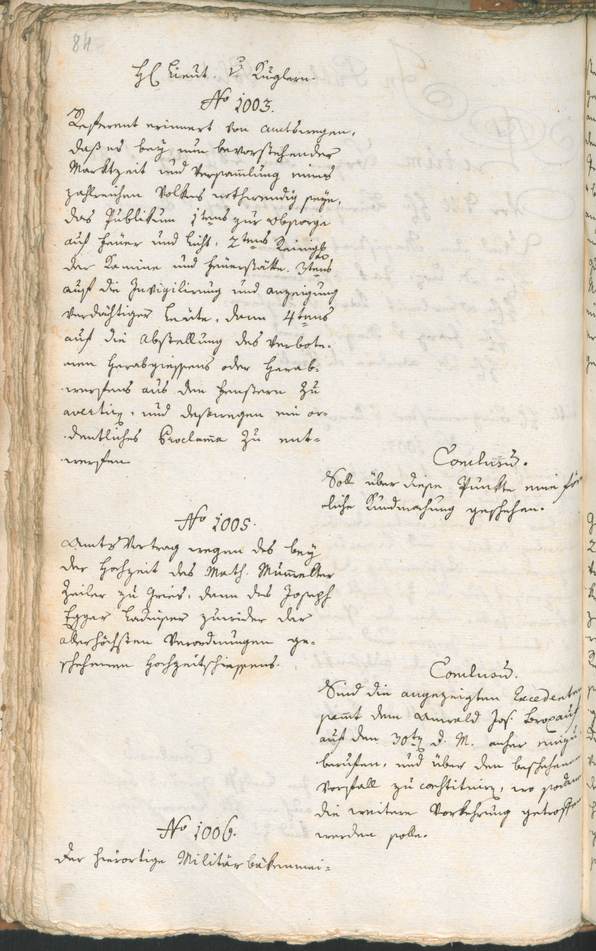 84
H[errn] Lieut. v. Kuglern.
No 1003.
Referent erinnert von amtswegen,
daß es bey nun bevorstehender
Marktzeit und Versammlung eines
zahlreichen Volkes nothwendig seye,
das Publikum 1tens zur Obsorge
auf Feuer und Licht, 2tens Reinigg
der Kamine und Feuerstätte. 3tens
auf die Invigilirung und anzeigung
verdächtiger Leute, dann 4tens
auf die Abstellung des verbote-
nen Herabgiessens oder Herab-
werfens aus den Fenstern zu
avertirn, und deßwegen ein or-
dentliches Proclama zu ent-
werffen
Conclusũ.
Soll über diese Punkte eine för-
liche Kundmachung geschehen.
No 1005.
Amts Vortrag wegen des bey
der Hochzeit des Math. Mumelter
Zeiler zu Gries, dann des Joseph
Egger Ladurner zuwider der
allerhöchsten Verordnungen ge-
schehenen Hochzeitschiessens.
Conclusũ.
Sind die angezeigten Excedenten
samt dem Anwald Jos.
auf den 30ten d. M. anher
berufen, und über den beschehenen
Vorfall zu constituirn, wo sodann
die weitere Vorkehrung getroffen
werden solle.
No 1006.
Der hierortige Militärbäkenmei-